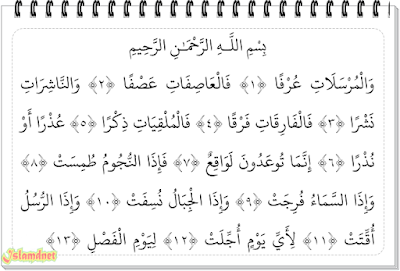 بِسْمِ اللَّـهِ الرَّحْمَـٰنِ الرَّحِيمِ
وَالْمُرْسَلَاتِ عُرْفًا ﴿١﴾ فَالْعَاصِفَاتِ عَصْفًا ﴿٢﴾ وَالنَّاشِرَاتِ
نَشْرًا ﴿٣﴾ فَالْفَارِقَاتِ فَرْقًا ﴿٤﴾ فَالْمُلْقِيَاتِ ذِكْرًا ﴿٥﴾ عُذْرًا أَوْ
نُذْرًا ﴿٦﴾ إِنَّمَا تُوعَدُونَ لَوَاقِعٌ ﴿٧﴾ فَإِذَا النُّجُومُ طُمِسَتْ ﴿٨﴾
وَإِذَا السَّمَاءُ فُرِجَتْ ﴿٩﴾ وَإِذَا الْجِبَالُ نُسِفَتْ ﴿١٠﴾ وَإِذَا الرُّسُلُ
أُقِّتَتْ ﴿١١﴾ لِأَيِّ يَوْمٍ أُجِّلَتْ ﴿١٢﴾ لِيَوْمِ الْفَصْلِ ﴿١٣﴾
Islamdnet